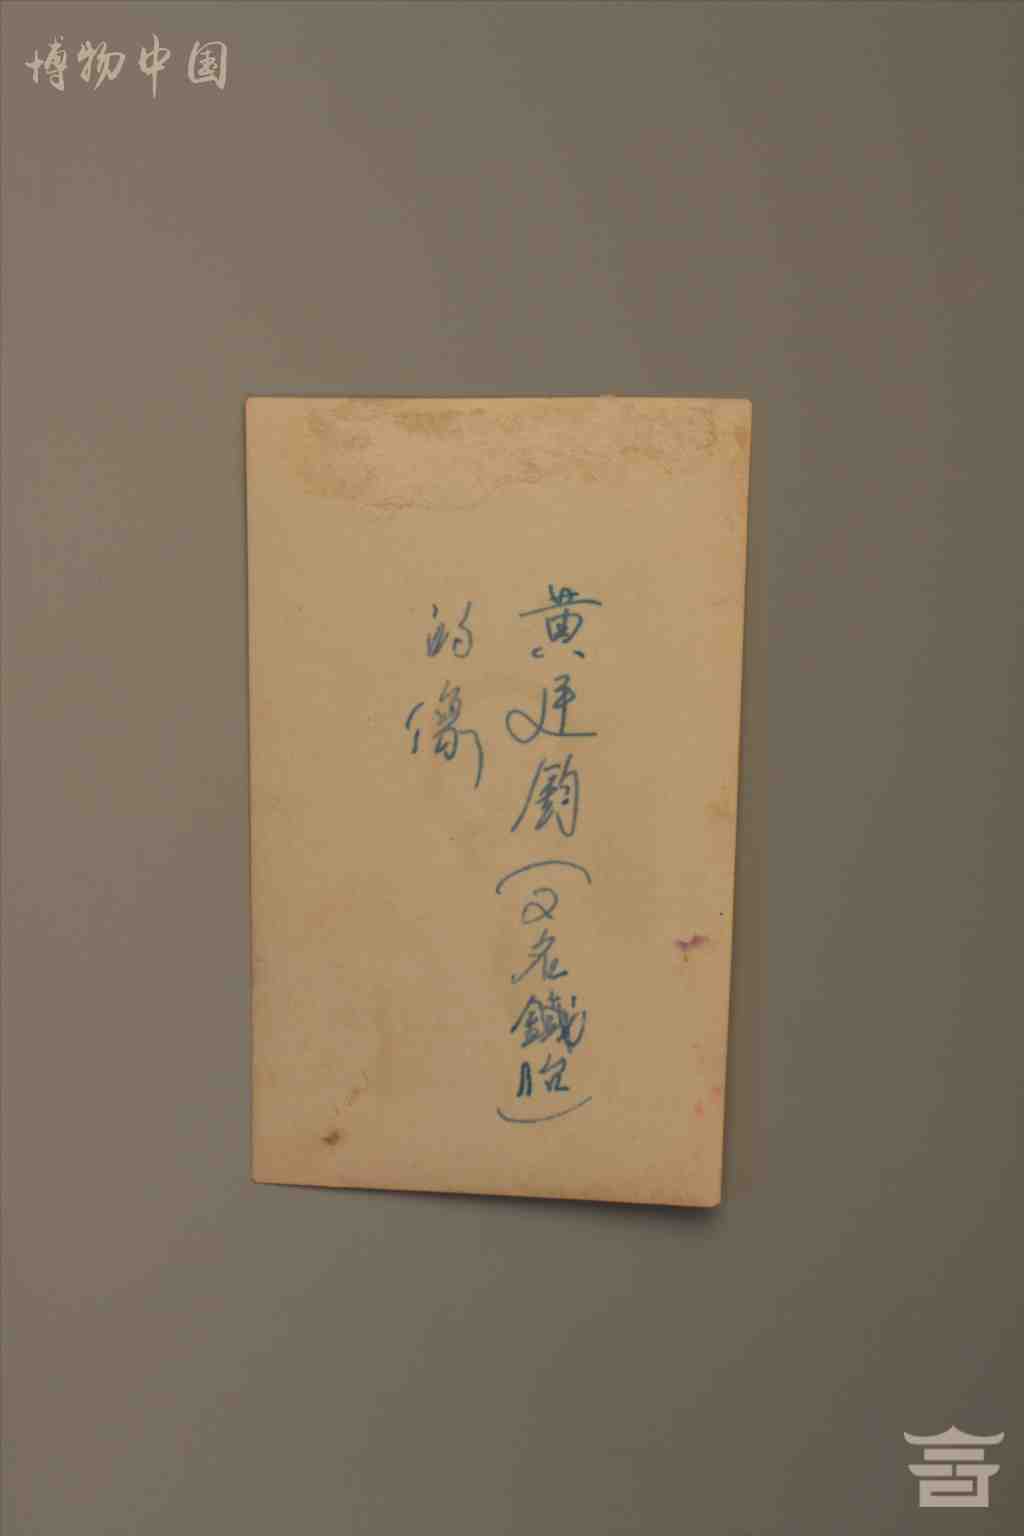 博物中国
黄廷鈞(又名鐵胎)
的像